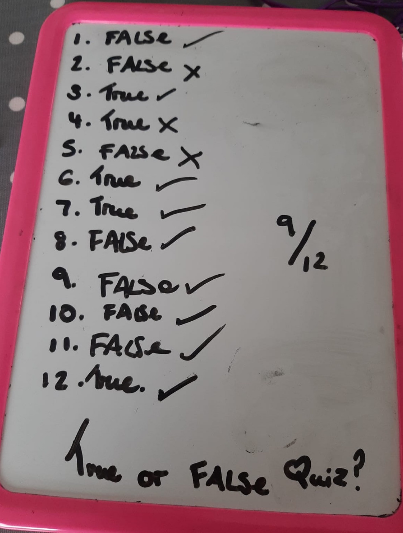 1. FALSe ✓
2. FALSe ✗
3. True ✓
4. True ✗
5. FALSe ✗
6. True ✓
7. True ✓
8. FALSe ✓
9/12
9. FALSe ✓
10. FALSe ✓
11. FALSe ✓
12. True. ✓
True or FALSe Quiz?